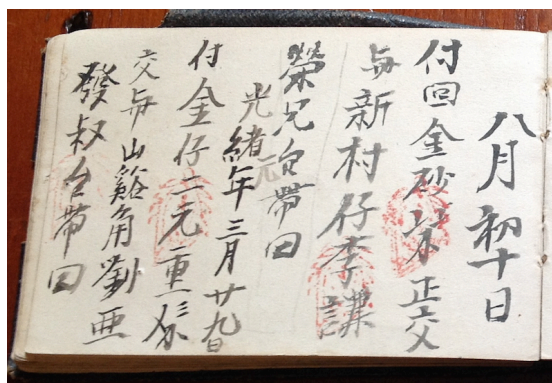 八月初十日
付回金砂
正六
与新村仔李謙
榮兄台帶回
光緒元年三月廿九日
付金仔二元重
交与山谿角劉亜
發叔台帶回